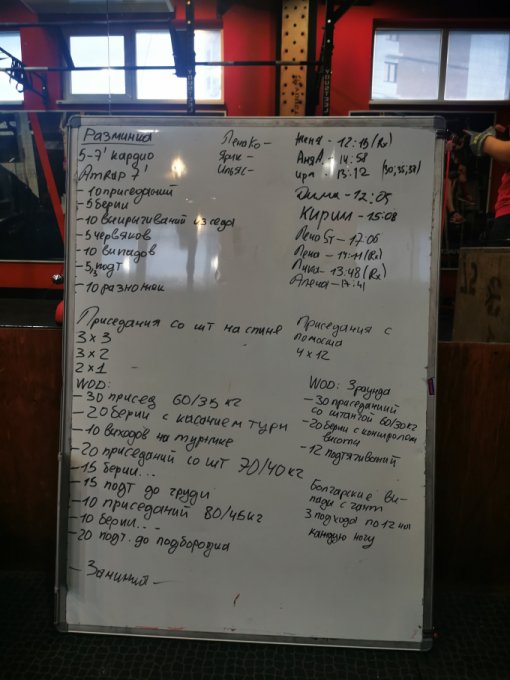 Разминка
5-7' кардио
Amrap 7'
-10 приседаний
-5 берпи
-10 выпрыгиваний из седа
-5 червяков
-10 выпадов
-5 подт
-10 разножек
Приседания со шт на спине
3 x 3
3 x 2
2 x 1
WOD:
-30 присед 60/35 кг
-20 берпи с касанием турн
-10 выходов на турнике
-20 приседаний со шт 70/40 кг
-15 берпи...
-15 подт до груди
-10 приседаний 80/45 кг
-10 берпи...
-20 подт. до подбородка
- Заминка -
Лена Ко-
Ярик-
Ильяс-
Женя - 12:13 (Rx)
- 14:58
Ира - 13:12
Дима - 12:05
Кирилл - 15:08
Лена St - 17:06
Лена - 14:11 (Rx)
13:48 (Rx)
Алена - 17:41
Приседания с
помоста
4 x 12
WOD: 3 раунда
-30 приседаний
со штангой 60/30 кг
-20 берпи с контролем
высоты
-12 подтягиваний
Болгарские вы-
пады с гант
3 подхода по 12 на
каждую ногу